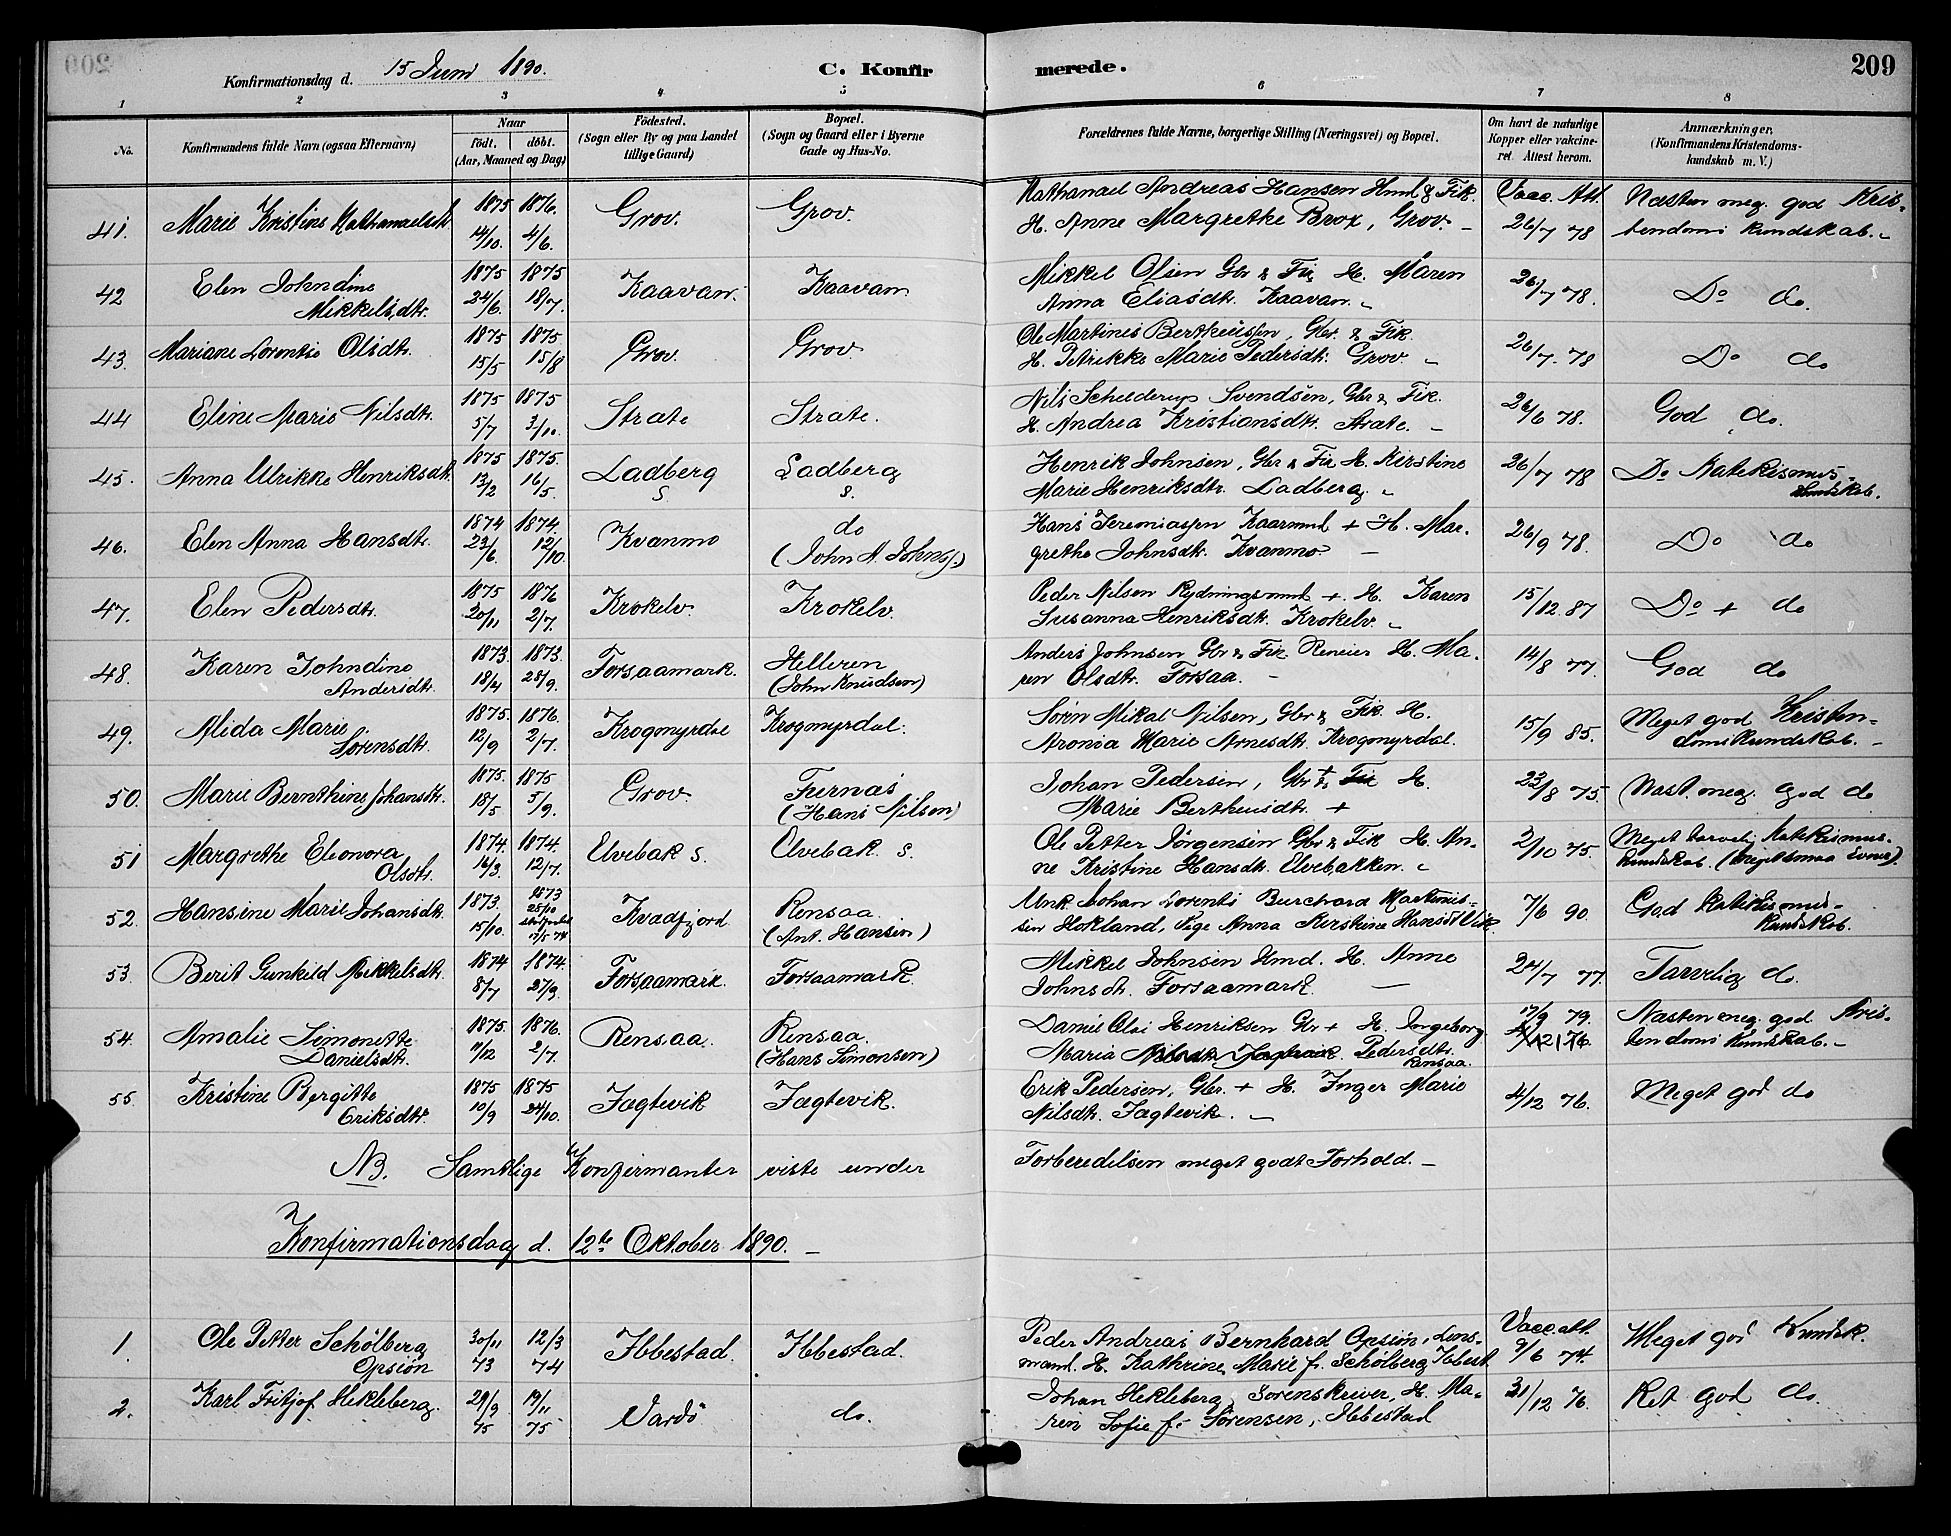 209
Konfirmationsdag d. 15 Juni 1890. C. Konfirmerede. 209
1 2 3 4 5 6 7 8
No. Konfirmandens fulde Navn (ogsaa Efternavn) Naar født. døbt. (Aar, Maaned og Dag) Fødested. (Sogn eller By og paa Landet tillige Gaard) Bopæl. (Sogn og Gaard eller i Byerne Gade og Hus-No. Forældrenes fulde Navne, borgerlige Stilling (Næringsvei) og Bopæl. Om havt de naturlige Kopper eller vakcineret. Attest herom. Anmærkninger. (Konfirmandens Kristendomskundskab m. V.)
41. Marie Kristine Nathanaelsdt. 1875 14/10. 1876. 4/6. Grov. Grov. Nathanael Andreas Hansen Hmd & Fik.
H. Anne Margrethe Brox, Grov. – Vacc. Att. 26/7 78 Næsten meg. god Kris-
tendomskundskab. –
42 Elen Johndine
Mikkelsdtr. 1875 24/6. 1875 18/7. Kaavan. Kaavan Mikkel Olsen Gbr & Fik H. Maren
Anna Eliasdtr. Kaavan. – 26/7 78. Do do.
43. Mariane Lorentse Olsdtr. 1875 15/5 1875 15/8 Grov. Grov Ole Martines Bertheussen, Gbr. & Fik.
H. Petrikke Marie Pedersdtr. Grov. – 26/7. 78 Do do
44 Eline Marie Nilsdtr. 1875 5/7 1875 3/10. Strate Strate. Nils Schelderup Svendsen, Gbr & Fik.
H. Andrea Kristiansdtr. Strate. – 26/6 78. God do.
45. Anna Ulrikke Henriksdtr. 1875 13/2 1875. 16/5. Ladberg
S Ladberg
S. Henrik Johnsen, Gbr & Fik H. Kirstine
Marie Henriksdtr. Ladberg. – 26/7 78 Do Katekismus-
kundskab.
46. Elen Anna Hansdtr. 1874 23/6. 1874. 12/10. Kvanmo do
(John N. Johns.) Hans Jeremiassen Kaarmd + H. Mar-
grethe Johnsdtr. Kvanmo – 26/9 78. Do do
47. Elen Pedersdtr. 1875 20/11 1876 2/7. Krokelv. Krokelv. Peder Nilsen Rydningsmd + H. Karen
Susanna Henriksdtr. Krokelv. – 15/12. 87 Do + do
48. Karen Johndine
Andersdtr. 1873. 18/4 1873. 28/9. Forsaamark. Helleren
(John Knudsen) Anders Johnsen Gbr & Fik Reneier H. Ma-
ren Olsdtr. Forsaa. – 14/8 77. God do
49. Alida Marie
Sørensdtr. 1875. 12/9 1876. 2/7. Krogmyrdal Krogmyrdal. Søren Mikal Nilsen, Gbr & Fik. H.
Aronia Marie Arnesdtr. Krogmyrdal. 15/9 85. Meget god Kristen-
domskundskab. –
50. Marie Bernthine Johansdtr. 1875. 18/5 1875 5/9. Grov. Furnæs
(Hans Nilsen) Johan Pedersen, Gbr + & Fik H.
Marie Bertheusdtr. + 23/8 75. Næst. meg. god do
51 Margrethe Eleonora
Olsdtr. 1874. 16/3. 1874. 12/7. Elvebak S. Elvebak S. Ole Petter Jørgensen Gbr & Fik H. An-
ne Kristine Hansdtr. Elvebakken. – 2/10 75. Meget tarvelig Katekismus-
kundskab. (Meget smaa Evner).
52. Hansine Marie Johansdtr. 1873. 15/10. 1873 25/10 17/5 74 Kvædfjord Rensaa.
(Ant. Hansen) Unk. Johan Lorents Burchard Martinus-
sen Hokland, Pige Anna Kirstine Hansdt Vik. 7/6 90. God Katekismus-
kundskab.
53. Berit Gunhild Mikkelsdtr. 1874 8/7 1874. 27/9. Forsaamark. Forsaamark. Mikkel Johnsen Hmd. H. Anne
Johnsdtr. Forsaamark. – 24/7 77. Tarvelig do.
54. Amalie Simonette
Danielsdtr. 1875. 11/12 1876. 2/7. Rensaa. Rensaa.
(Hans Simonsen) Daniel Olai Henriksen Gbr + H. Ingeborg
Maria Pedersdtr.
Rensaa. 17/9 79. Næsten meg. god Kris-
tendomskundskab. –
55. Kristine Bergitte
Eriksdtr. 1875 10/9 1875 24/10. Jægtevik Jægtevik. Erik Pedersen, Gbr. + H. Inger Marie
Nilsdtr. Jægtevik. – 4/12 76. Meget god do
NB. Samtlige Konfirmanter viste under Forberedelsen meget godt Forhold. –
Konfirmationsdag d. 12te Oktober 1890. –
1. Ole Petter Schølberg
Opsiøn 30/11 73 12/3 74 Ibbestad. Ibbestad. Peder Andreas Bernhard Opsiøn, Lens-
mand. H. Kathrine Marie f. Schølberg Ibbest. Vacc. att. 9/6 74. Meget god Kundsk.
2. Karl Fritjof Hekleberg. 29/9 75 19/11 75 Vardø do. Johan Hekleberg, Sorenskriver, H. Ma-
ren Sofie f. Sørensen, Ibbestad 31/12 76. Ret god do.